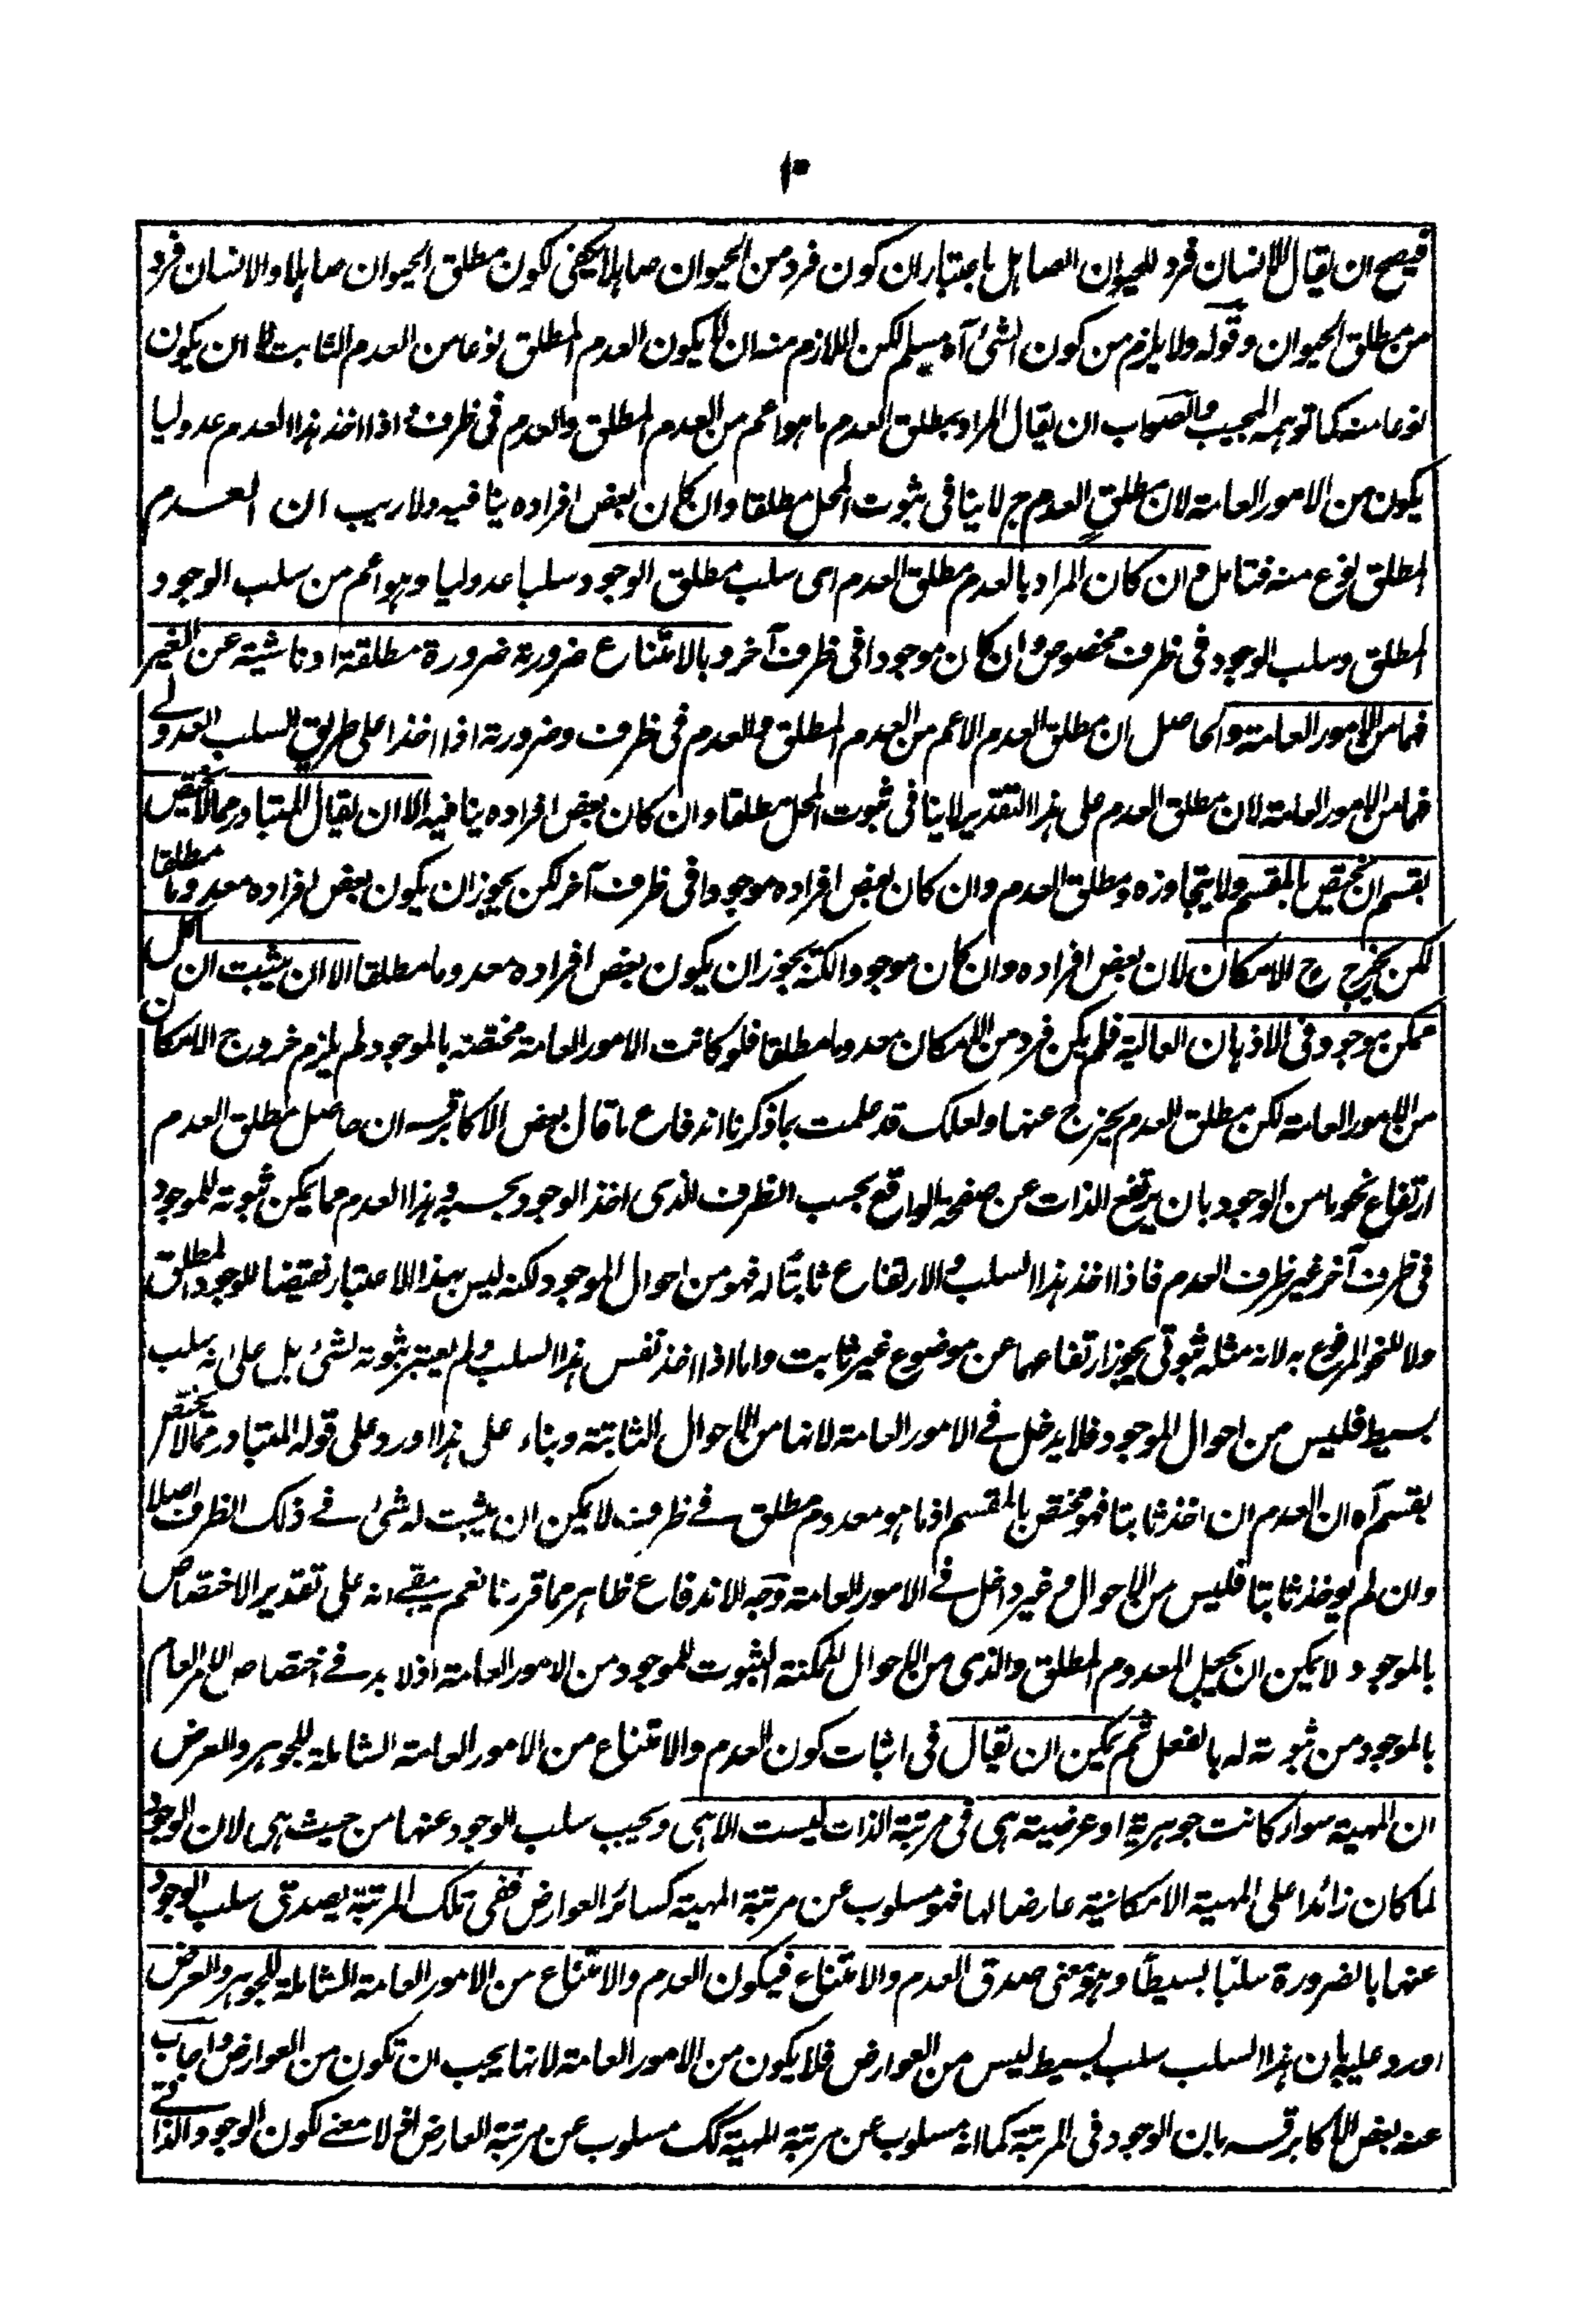 ١٠
فيصح ان يقال الانسان فرد للحيوان الصاهل باعتباران كون فرد من الحيوان صاهلا يكفى لكون مطلق الحيوان صاهلا والانسان فرد
من مطلق الحيوان وقوله ولا يلزم من كون الشئ آه مسلم لكن اللازم منه ان لا يكون العدم المطلق نوعا من العدم الثابت لا ان يكون
نوعا منه كما توهمه المجيب والصواب ان يقال المراد بمطلق العدم ما هو اعم من العدم المطلق والعدم فى ظرف اذا اخذ هذا العدم عدوليا
يكون من الامور العامة لان مطلق العدم ح لا ينافى ثبوت المحل مطلقا وان كان بعض افراده ينافيه ولا ريب ان العدم
المطلق نوع منه فتامل م ان كان المراد بالعدم مطلق العدم اى سلب مطلق الوجود سلبا عدوليا وهو اعم من سلب الوجود
المطلق وسلب الوجود فى ظرف مخصوص وان كان موجودا فى ظرف آخر وبالامتناع ضرورته ضرورة مطلقة او ناشية عن الغير
فهما من الامور العامة والحاصل ان مطلق العدم الاعم من العدم المطلق والعدم فى ظرف وضرورته اذا اخذا على طريق السلب العدولى
فهما من الامور العامة لان مطلق العدم على هذا التقدير لا ينافى ثبوت المحل مطلقا وان كان بعض افراده ينافيه الا ان يقال المتبادر مما لا يختص
بقسم ان يختص بالمقسم ولا يتجاوزه ومطلق العدم وان كان بعض افراده موجودا فى ظرف آخر لكن يجوز ان يكون بعض افراده معدوما مطلقا
لكن يخرج ح الامكان لان بعض افراده وان كان موجودا لكنه يجوز ان يكون بعض افراده معدوما مطلقا الا ان يثبت ان كل
ممكن موجود فى الاذهان العالية فلم يكن فرد من الامكان معدوما مطلقا فلو كانت الامور العامة مختصة بالموجود لم يلزم خروج الامكان
من الامور العامة لكن مطلق العدم يخرج عنها ولعلك قد علمت بما ذكرنا اندفاع ما قال بعض الاكابر قسه ان حاصل مطلق العدم
ارتفاع نحو ما من الوجود بان يرتفع الذات عن صفحة الواقع بحسب الظرف الذى اخذ الوجود بحسبه وهذا العدم مما يمكن ثبوته للموجود
فى ظرف آخر غير ظرف العدم فاذا اخذ هذا السلب والارتفاع ثابتا له فهو من احوال الموجود لكنه ليس بهذا الاعتبار نقيضا للوجود المطلق
ولا للنحو المرفوع به لانه مثله ثبوتى يجوز ارتفاعهما عن موضوع غير ثابت واما اذا اخذ نفس هذا السلب ولم يعتبر ثبوته لشئ بل على انه سلب
بسيط فليس من احوال الموجود فلا يدخل فى الامور العامة لانها من الاحوال الثابتة وبناء على هذا اورد على قوله المتبادر مما لا يختص
بقسم آه ان العدم ان اخذ ثابتا فهو مختص بالمقسم اذ ما هو معدوم مطلق فى ظرف لا يمكن ان يثبت له شئ فى ذلك الظرف اصلا
وان لم يوخذ ثابتا فليس من الاحوال وغير داخل فى الامور العامة وجه الاندفاع ظاهر مما قررنا نعم يبقى انه على تقدير الاختصاص
بالموجود لا يمكن ان يجعل المعدوم المطلق والذى من الاحوال الممكنة الثبوت للموجود من الامور العامة اذ لا بد فى اختصاص الامر العام
بالموجود من ثبوته له بالفعل ثم يمكن ان يقال فى اثبات كون العدم والامتناع من الامور العامة الشاملة للجوهر والعرض
ان المهية سواء كانت جوهرية او عرضية هى فى مرتبة الذات ليست الا هى ويجب سلب الوجود عنها من حيث هى لان الوجود
لما كان زائدا على المهية الامكانية عارضا لها فهو مسلوب عن مرتبة المهية كسائر العوارض ففى تلك المرتبة يصدق سلب الوجود
عنها بالضرورة سلبا بسيطا وهو معنى صدق العدم والامتناع فيكون العدم والامتناع من الامور العامة الشاملة للجوهر والعرض
اورد عليه بان هذا السلب سلب بسيط ليس من العوارض فلا يكون من الامور العامة لانها يجب ان تكون من العوارض واجاب
عنه بعض الاكابر قسه بان الوجود فى المرتبة كما انه مسلوب عن مرتبة المهية كك مسلوب عن مرتبة العارض اذ لا معنى لكون الوجود الذاتى